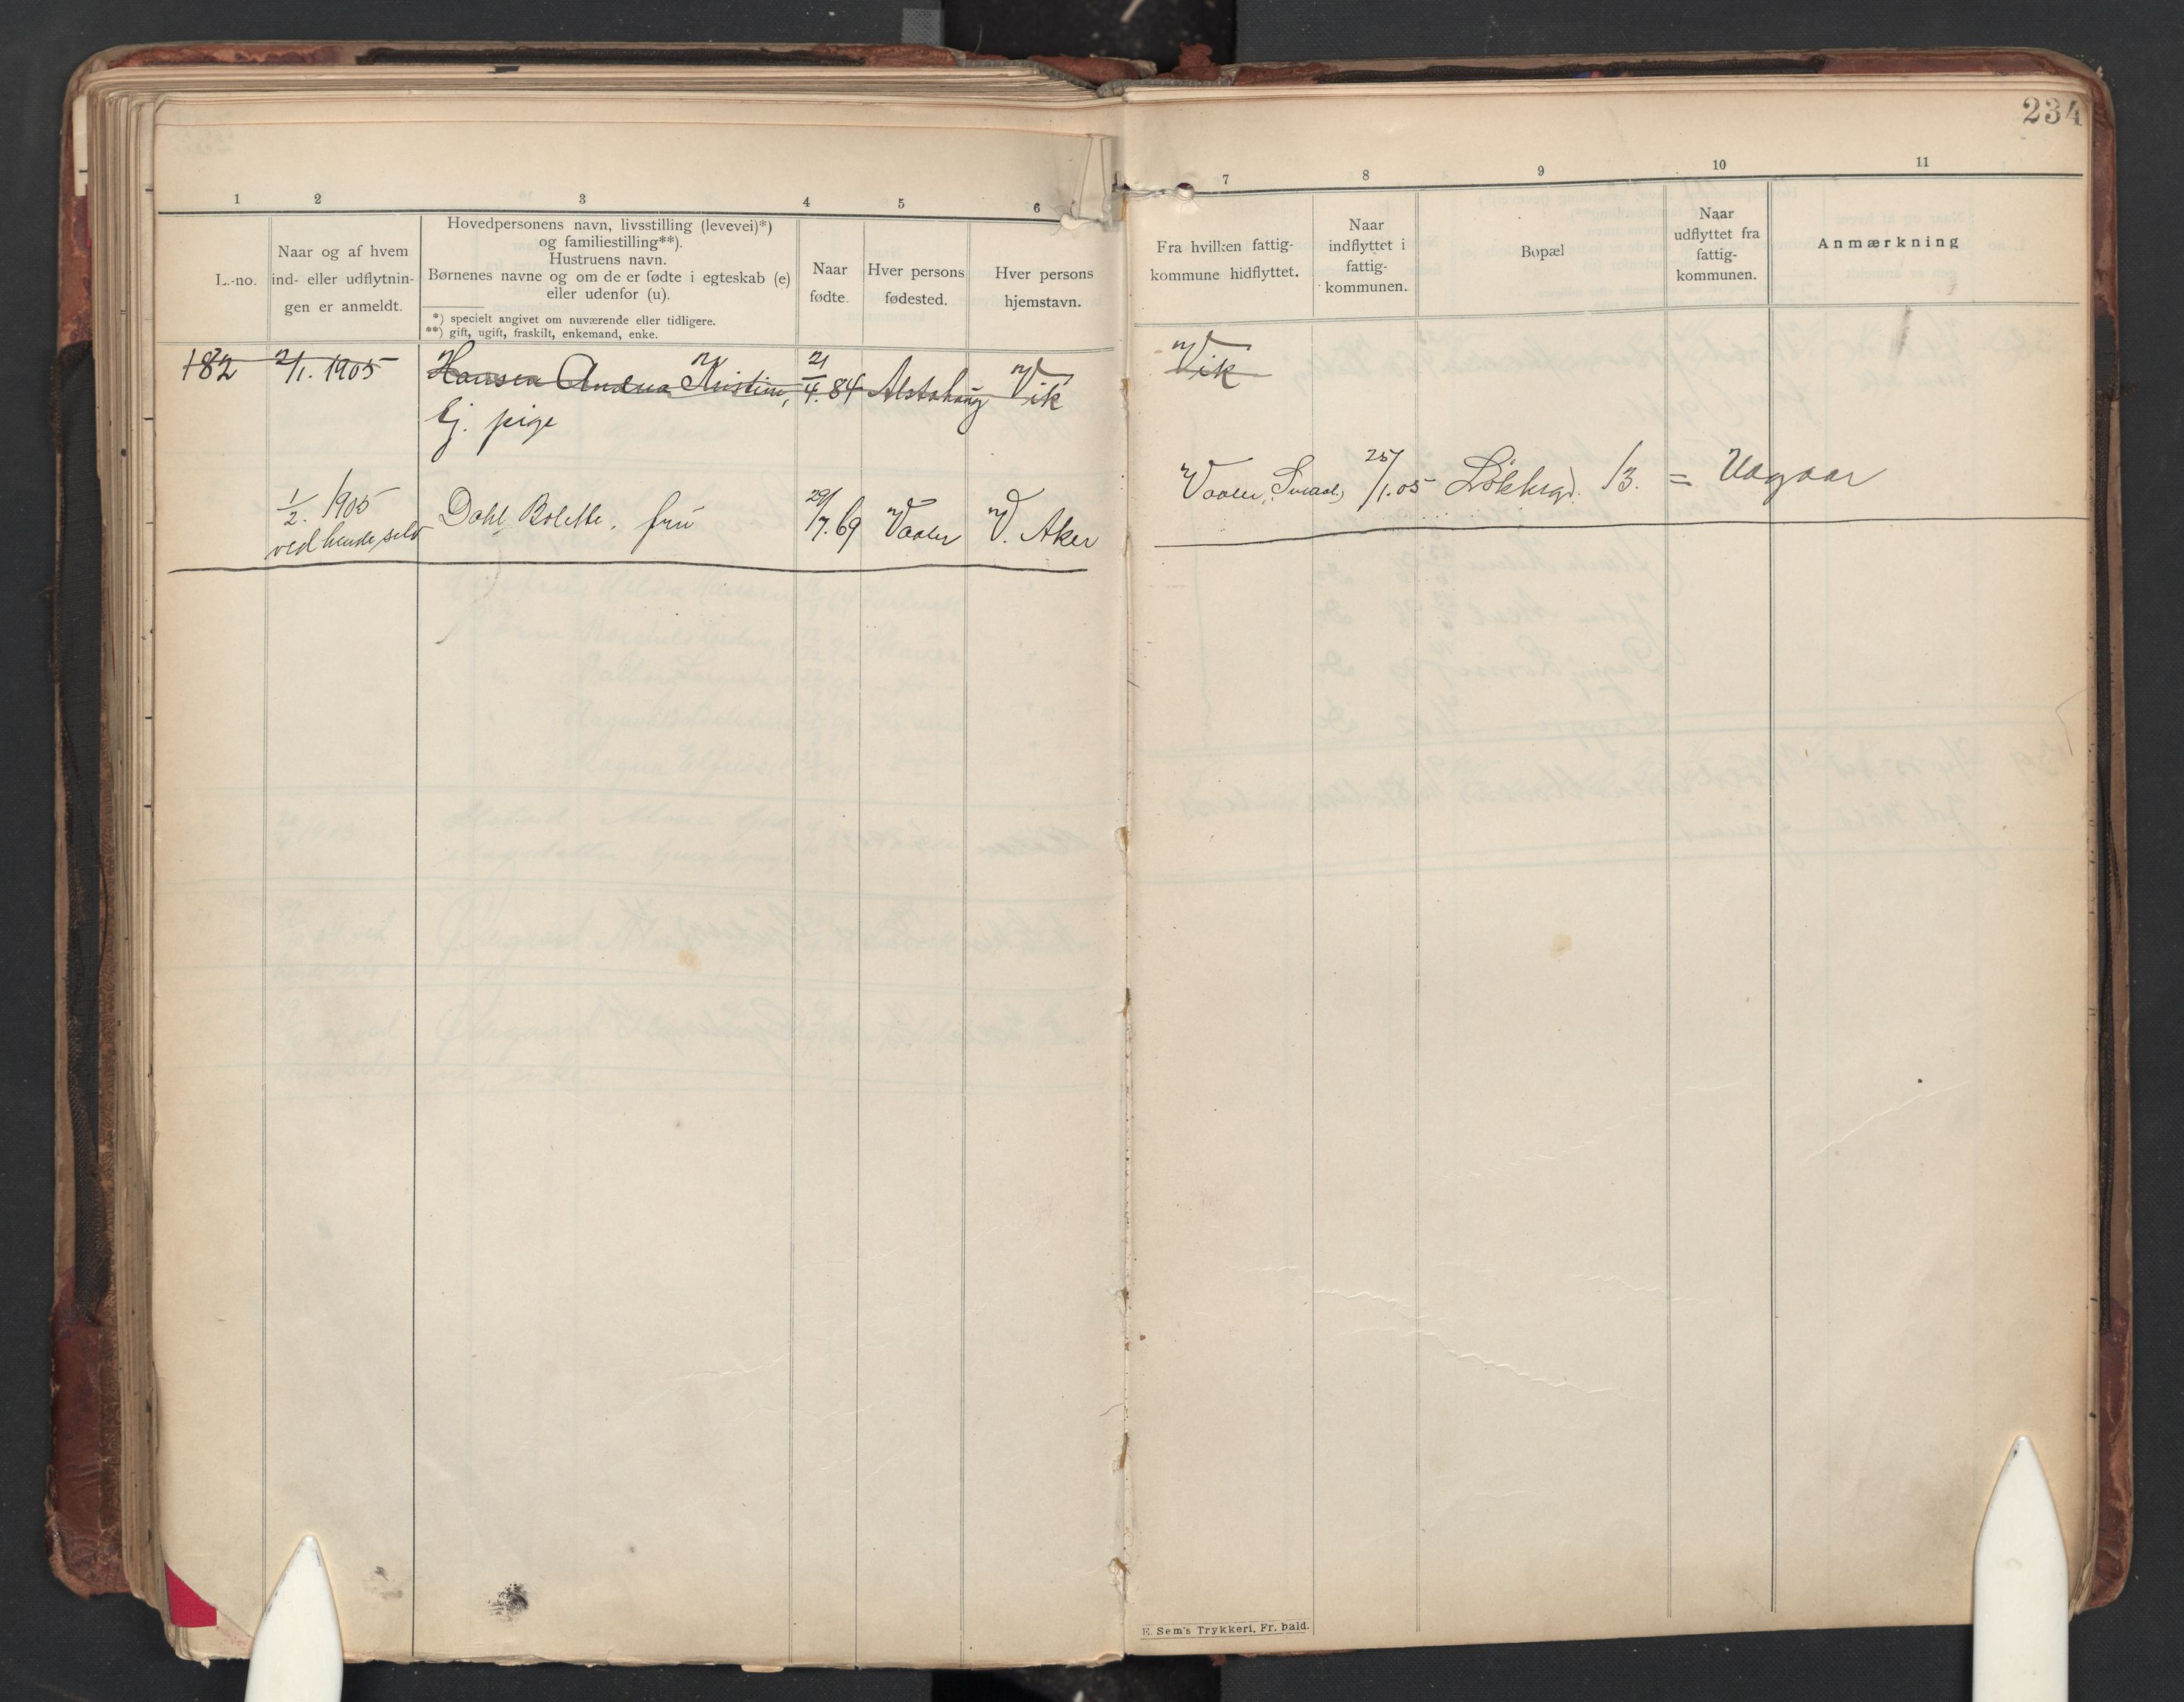 234
1 2 3 4 5 6
7 8 9 10 11
L.-no.
Naar og af hvem
ind- eller udflytnin-
gen er anmeldt.
Hovedpersonens navn, livsstilling (levevei)*)
og familiestilling**).
Hustruens navn.
Børnenes navne og om de er fødte i egteskab (e)
eller udenfor (u).
*) specielt angivet om nuværende eller tidligere.
**) gift, ugift, fraskilt, enkemand, enke.
Naar
fødte.
Hver persons
fødested.
Hver persons
hjemstavn.
Fra hvilken fattig-
kommune hidflyttet.
Naar
indflyttet i
fattig-
kommunen.
Bopæl
Naar
udflyttet fra
fattig-
kommunen.
Anmærkning
182 2/1. 1905 Hansen Andrea Kristine, 21/4. 84 Alstahaug Vik Vik
tj. pige
1/2. 1905 Dahl Bolette. frú 29/7. 69 Vaaler V. Aker Vaaler, 25/1. 05 Løkkegd. 13. =
ved hende selv
E. Sem's Trykkeri, Fr.hald.